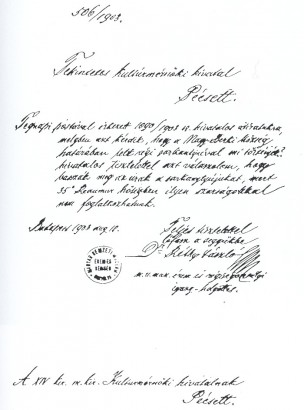 506/1903.
Tekintetes kultúrmérnöki hivatal
Pécsett.
Tegnapi postával érkezett 1090/1903 sz. hivatalos átiratukra,
melyben azt kérdik, hogy a Magyar-Berki község
határában felt régi sarkantyúval mi történjék?
hivatalos tisztelettel azt válaszolom, hogy
meg azt a sarkantyújukat, mert
35° Reaumur hőségben ilyen szarságokkal
nem foglalkozhatunk.
Budapest 1903 aug 10.
Teljes tisztelettel
Dr László
m. n. muz. érem és régiségosztályi
igazg.
MAGYAR NEMZETI
ÉREM-ÉS
A XIV ker. m. kir. Kultúrmérnöki hivatalnak
Pécsett.